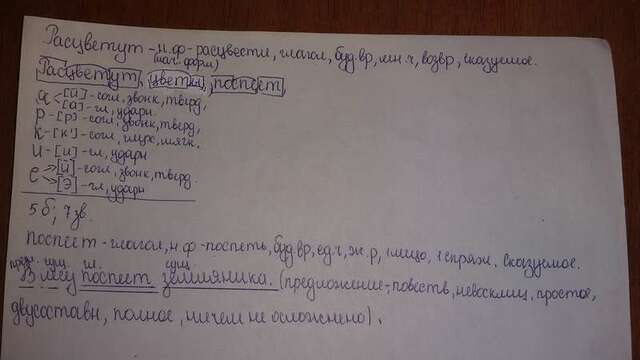 Расцветут - н.ф - расцвести, глагол, буд.вр, мн.ч, возвр, сказуемое.
(нач. форма)
Расцветут, цветы, поспеет,
Я < [Й] - согл, звонк, тверд,
[а] - гл, ударн.
Р - [р] - согл, звонк, тверд,
К - [к'] - согл, глух, мягк.
И - [и] - гл, ударн
Е → [Й] - согл, звонк, тверд.
→ [Э] - гл, ударн
5 б; 7 зв.
поспеет - глагол, н.ф - поспеть, буд.вр, ед.ч, ж.р, 1 лицо, 1 спряж. Сказуемое.
предл. сущ. гл. сущ.
В лесу поспеет земляника. (предложение - повеств, невосклиц, простое,
двусоставн, полное, ничем не осложнено).